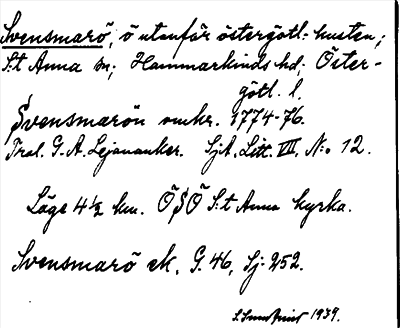 Svensmarö, ö utanför östergötl. kusten;
S:t Anna sn; Hammarkinds hd; Öster-
götl. l.
Svensmarön omkr. 1774-76.
Tral. G. A. Lejonanker. SjA, Litt. VII, N:o 12.
Läge 4½ km. ÖSÖ S:t Anna kyrka.
Svensmarö ek. G. 46, Sj: 252.
1939.